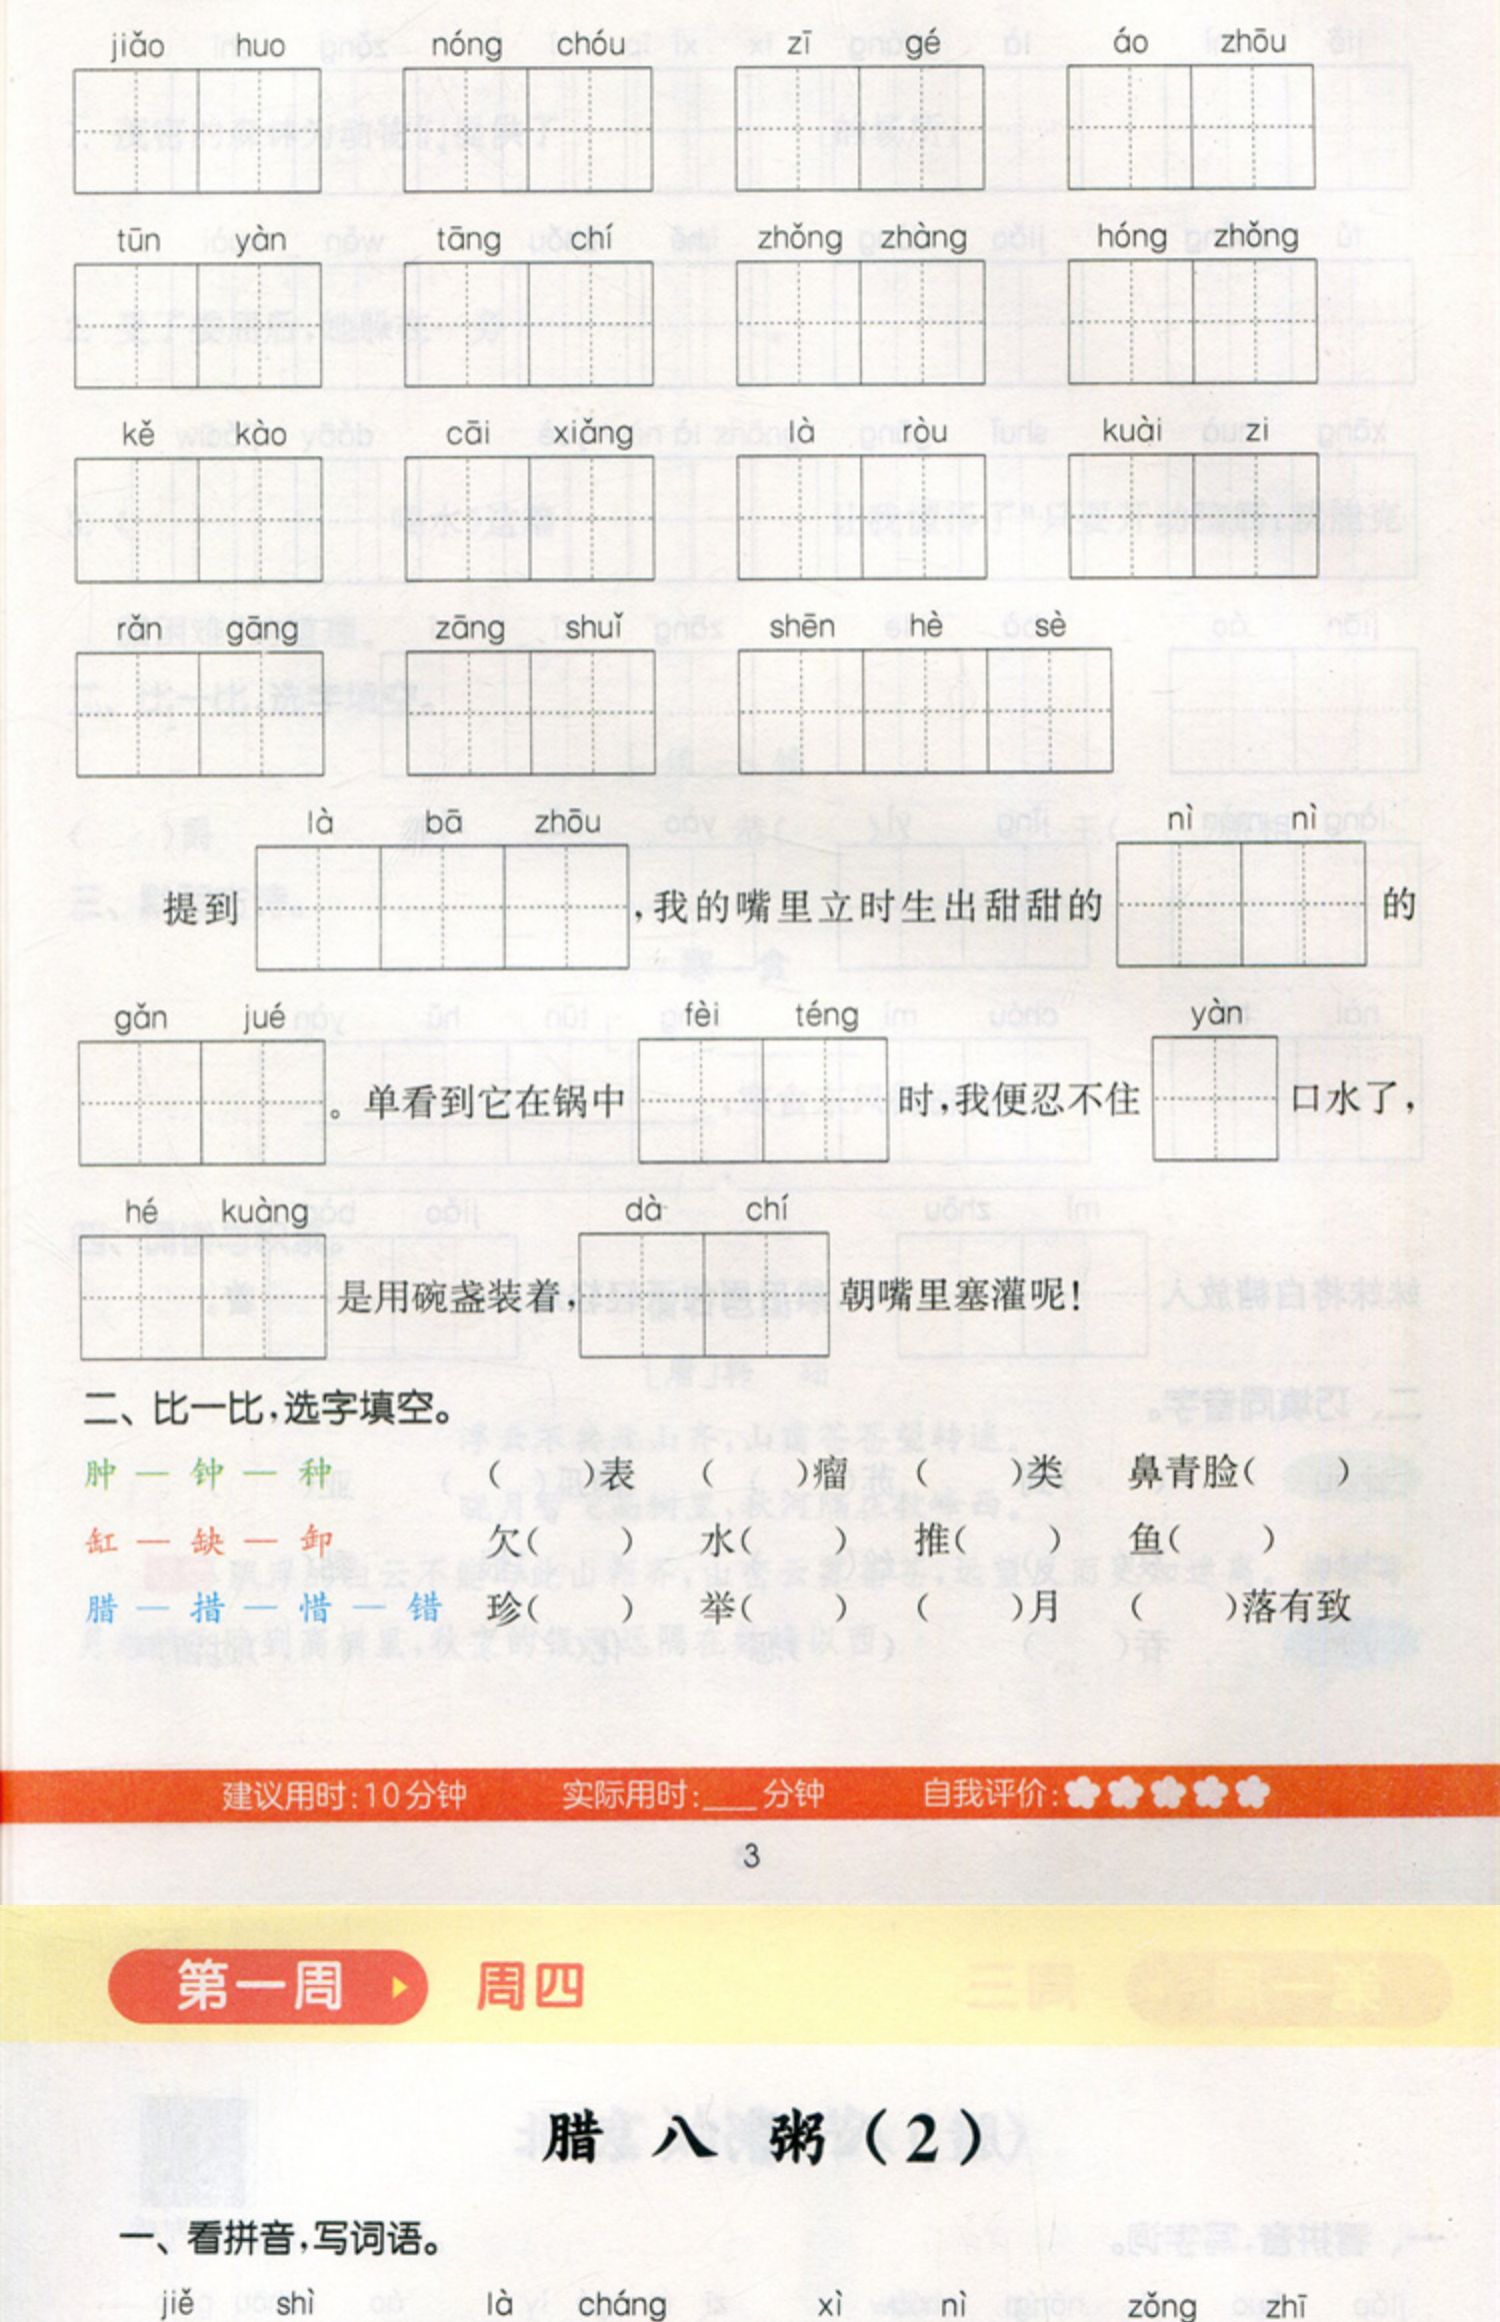 jiǎo huo nóng chóu zī gé áo zhōu
tūn yàn tāng chí zhǒng zhàng hóng zhǒng
kě kào cāi xiǎng là ròu kuài zi
rǎn gāng zāng shuǐ shēn hè sè
là bā zhōu nì nì
提到，我的嘴里立时生出甜甜的的
gǎn jué fèi téng yàn
。单看到它在锅中时，我便忍不住口水了，
hé kuàng dà chí
是用碗盏装着，朝嘴里塞灌呢！
二、比一比，选字填空。
肿 — 钟 — 种 （ ）表 （ ）瘤 （ ）类 鼻青脸（ ）
缸 — 缺 — 卸 欠（ ） 水（ ） 推（ ） 鱼（ ）
腊 — 措 — 惜 — 错 珍（ ） 举（ ） （ ）月 （ ）落有致
建议用时：10分钟 实际用时：___分钟 自我评价：
3
第一周 周四
腊八粥（2）
一、看拼音，写词语。
jiě shì là cháng xì nì zǒng zhī